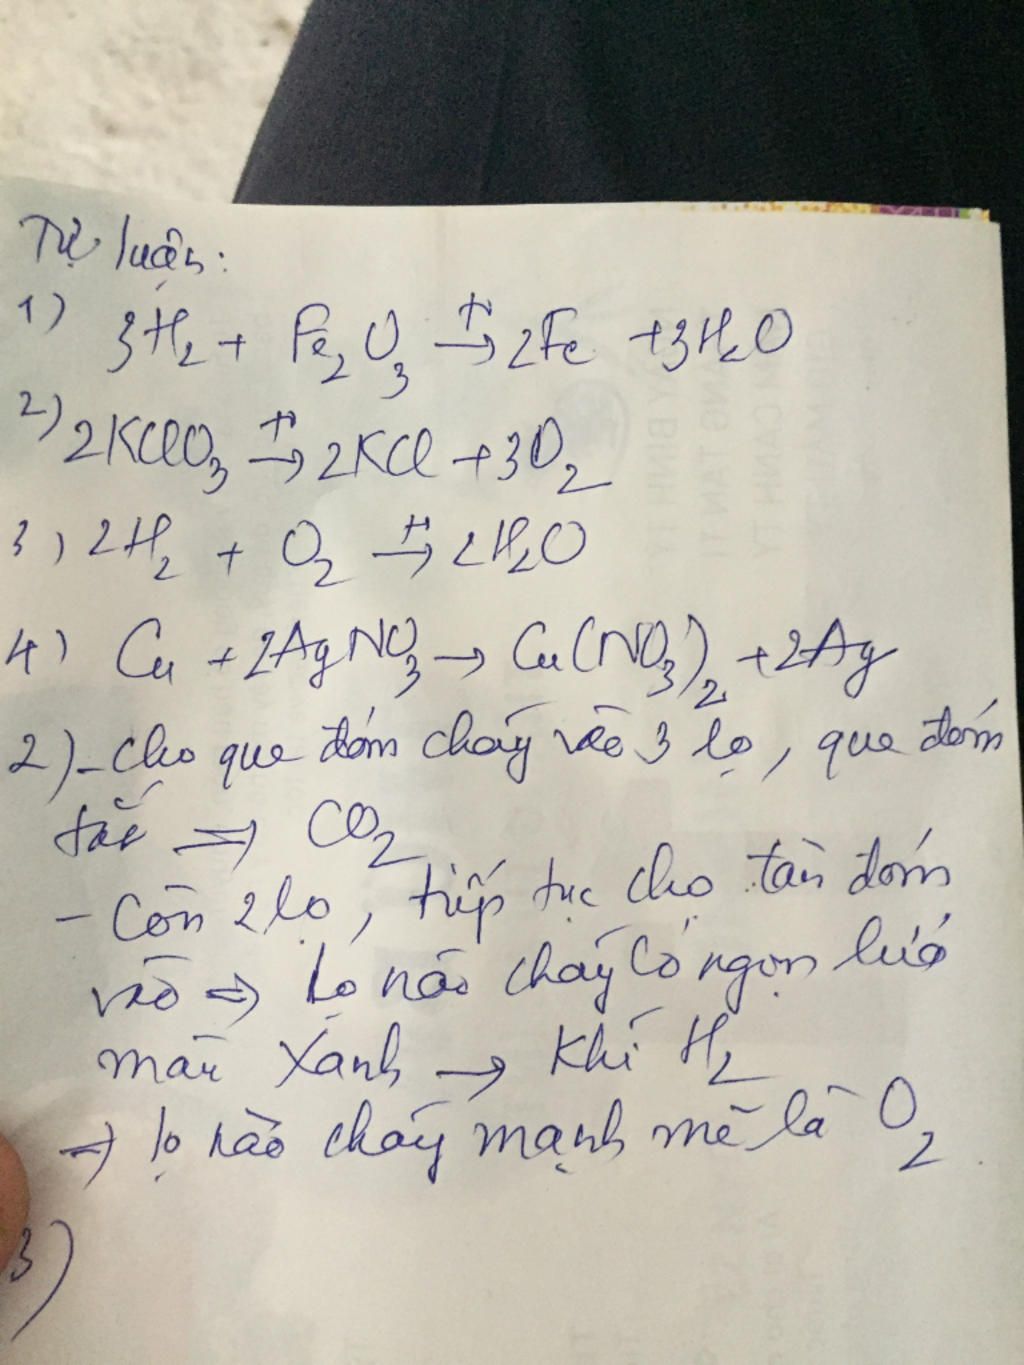 Tự luận:
1) 3H₂ + Fe₂O₃ →(t°) 2Fe + 3H₂O
2) 2KClO₃ →(t°) 2KCl + 3O₂
3) 2H₂ + O₂ →(t°) 2H₂O
4) Cu + 2AgNO₃ → Cu(NO₃)₂ + 2Ag
2) - Cho que đóm cháy vào 3 lọ, que đóm
tắt ⇒ CO₂
- Còn 2 lọ, tiếp tục cho tàn đóm
vào ⇒ Lọ nào cháy có ngọn lửa
màu xanh → Khí H₂
⇒ lọ nào cháy mạnh mẽ là O₂
3)